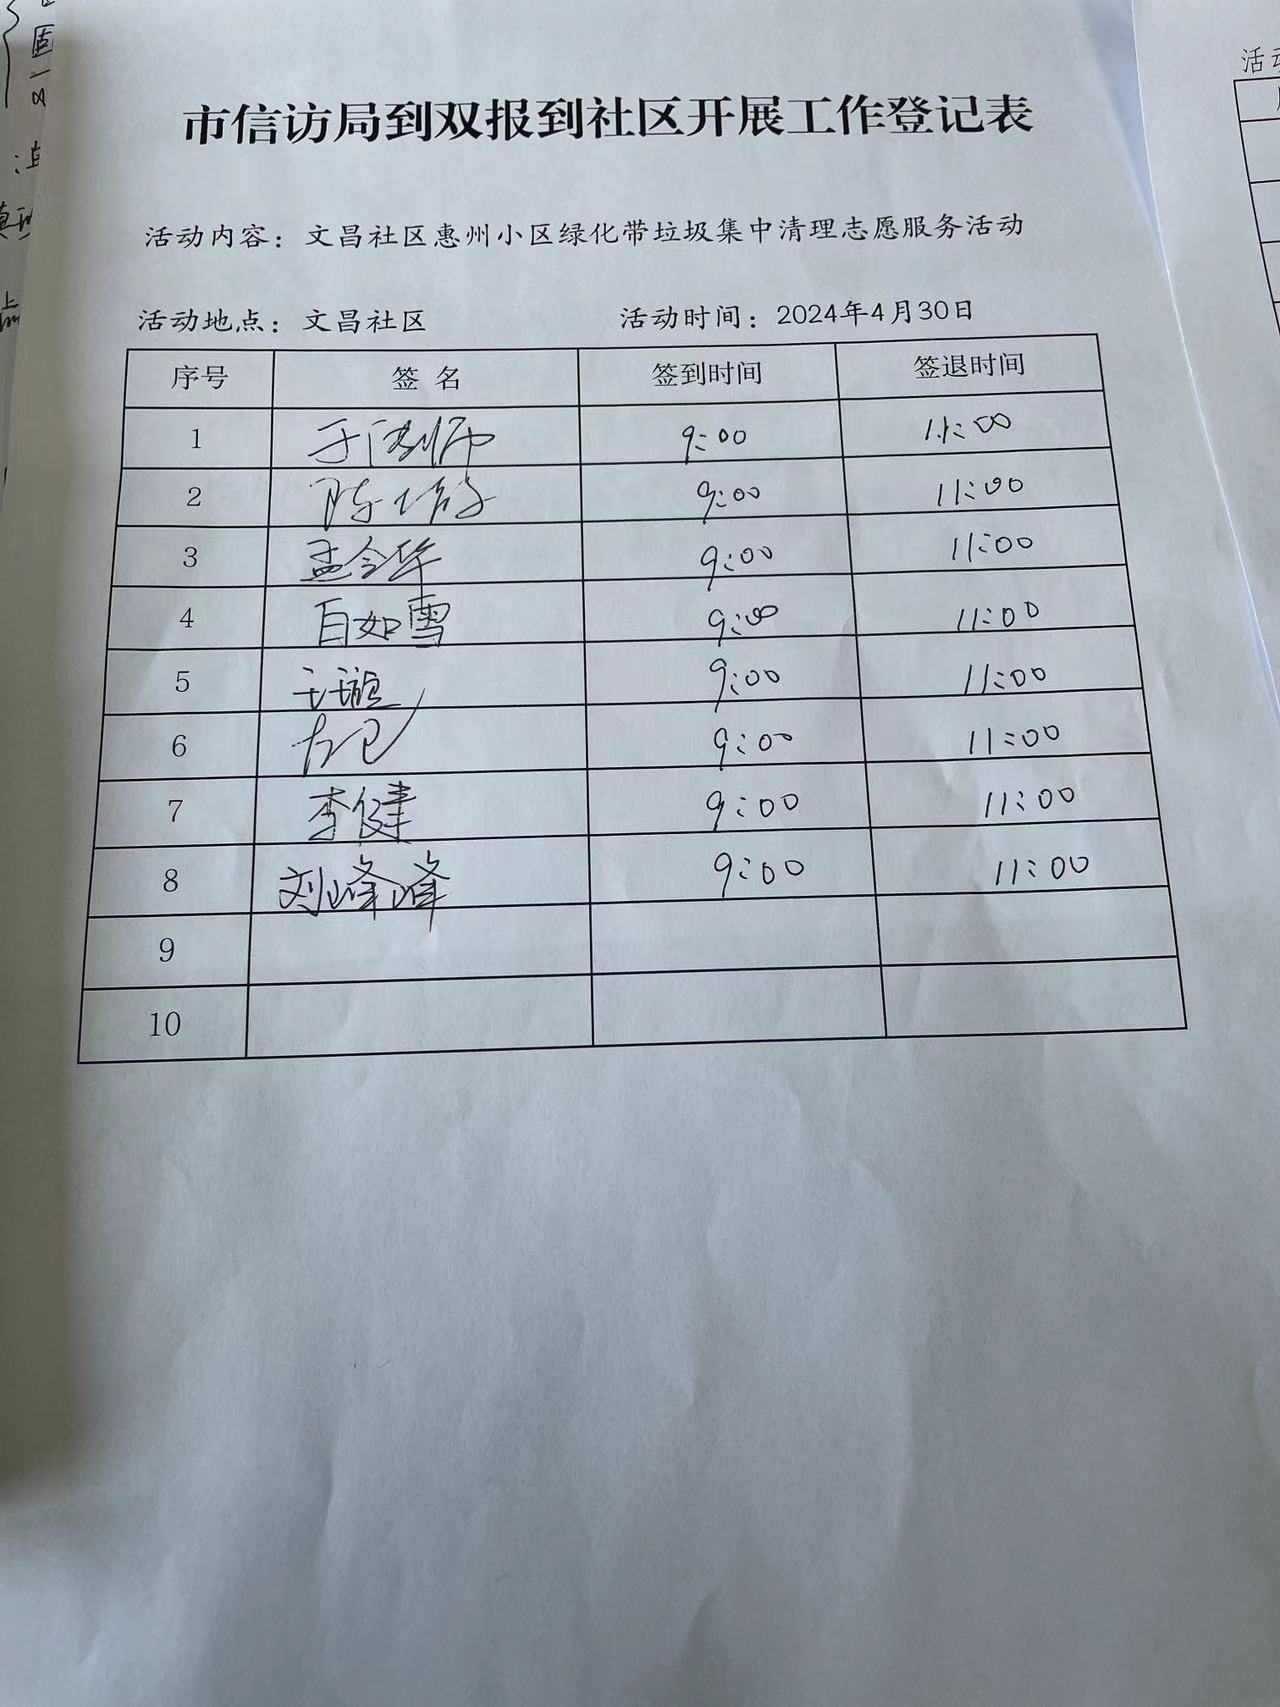 市信访局到双报到社区开展工作登记表
活动内容：文昌社区惠州小区绿化带垃圾集中清理志愿服务活动
活动地点：文昌社区 活动时间：2024年4月30日
序号 签 名 签到时间 签退时间
1 9:00 11:00
2 陈 9:00 11:00
3 孟令华 9:00 11:00
4 白如雪 9:00 11:00
5 王璇 9:00 11:00
6 9:00 11:00
7 李健 9:00 11:00
8 刘峰峰 9:00 11:00
9
10
活动